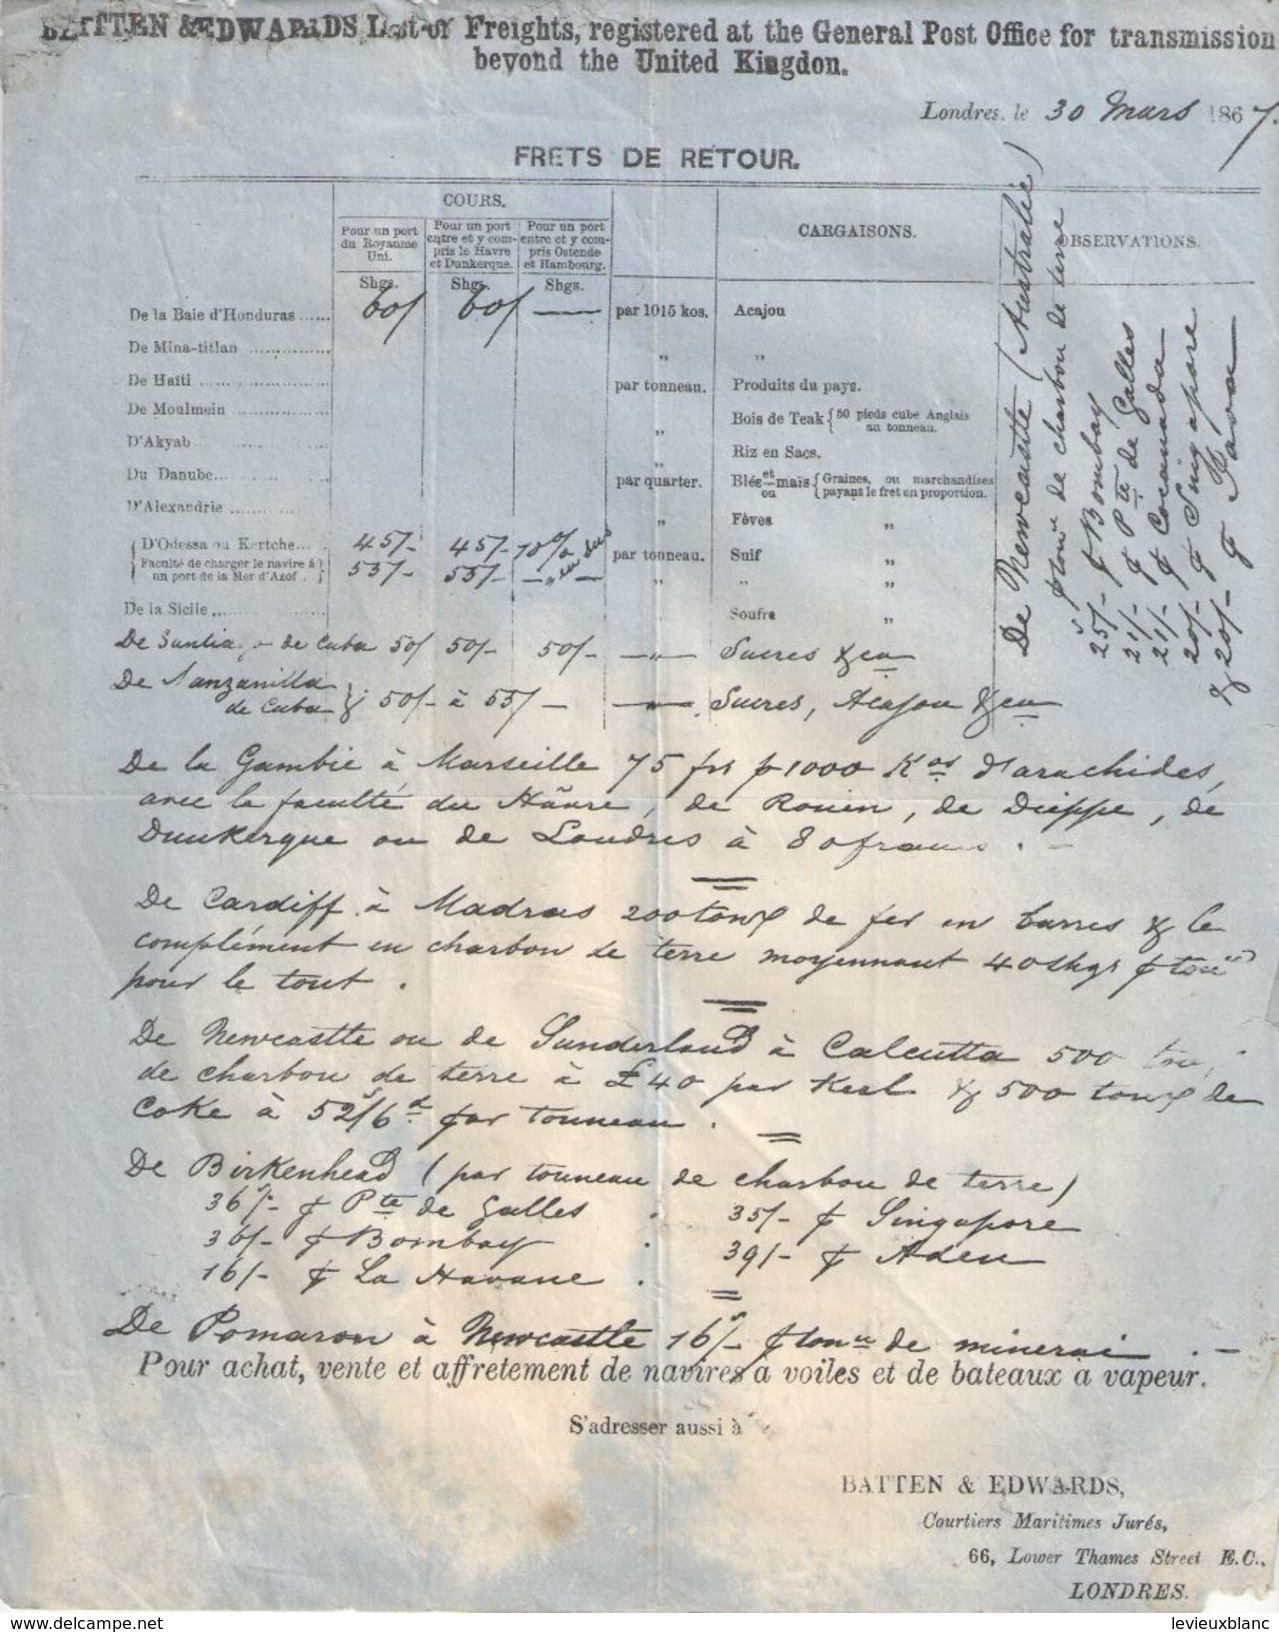 BATTEN & EDWARDS List of Freights, registered at the General Post Office for transmission
beyond the United Kingdon.
Londres, le 30 Mars 1867.
FRETS DE RETOUR.
COURS.
Pour un port du Royaume Uni.
Pour un port entre et y compris le Havre et Dunkerque.
Pour un port entre et y compris Ostende et Hambourg.
CARGAISONS.
OBSERVATIONS.
Shgs. Shgs. Shgs.
De la Baie d'Honduras ...... 60/ 60/ — par 1015 kos. Acajou
De Mina-titlan ............... „ „
De Haïti ........................ par tonneau. Produits du pays.
De Moulmein ................ „ Bois de Teak { 50 pieds cube Anglais au tonneau.
D'Akyab „ Riz en Sacs.
Du Danube... par quarter. Blés et ou maïs { Graines, ou marchandises payant le fret en proportion.
D'Alexandrie ............ „ Fèves „
D'Odessa ou Kertche... 45/- 45/- 10% en sus par tonneau. Suif „
Faculté de charger le navire à un port de la Mer d'Azof. 55/- 55/- — „ — „ „ „
De la Sicile ... „ Soufre „
De Santiago de Cuba 50/ 50/- 50/- —„— Sucres & ca
De Manzanilla de Cuba } 50/- à 55/- — —„— Sucres, Acajou & ca
De Newcastle (Australie)
p ton de charbon de terre
25/- p Bombay
21/- p Pte de Galles
21/- p Cocanada
20/- p Singapore
& 20/- p Java —
De la Gambie à Marseille 75 frs p 1000 Kos d'arachides,
avec la faculté du Hâvre, de Rouen, de Dieppe, de
Dunkerque ou de Londres à 80 francs. —
De Cardiff à Madras 200 tonx de fer en barres & le
complément en charbon de terre moyennant 40 Shgs p ton
pour le tout.
De Newcastle ou de Sunderland à Calcutta 500 ton
de charbon de terre à £40 par Keel & 500 tonx de
Coke à 52s/6d par tonneau.
De Birkenhead (par tonneau de charbon de terre)
36s/- p Pte de Galles . 35/- p Singapore
36/- p Bombay . 39/- p Aden
16/- p La Havane .
De Pomaron à Newcastle 16s/- p tonu de minerai . —
Pour achat, vente et affretement de navires à voiles et de bateaux à vapeur.
S'adresser aussi à
BATTEN & EDWARDS,
Courtiers Maritimes Jurés,
66, Lower Thames Street E.C.,
LONDRES.
levieuxblanc.com